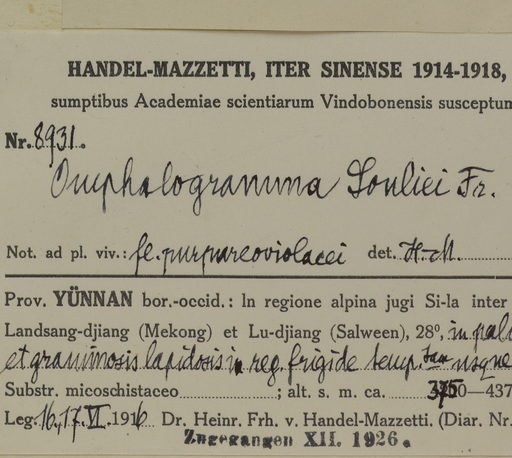 HANDEL-MAZZETTI, ITER SINENSE 1914-1918,
sumptibus Academiae scientiarum Vindobonensis susceptum
Nr. 8931.
Omphalogramma Souliei Fr.
Not. ad pl. viv.: fl. purpureoviolacei det. H.-M.
Prov. YÜNNAN bor.-occid.: In regione alpina jugi Si-la inter
Landsang-djiang (Mekong) et Lu-djiang (Salween), 28°, in
et graminosis lapidosis in reg. frigide temp. usque
Substr. micoschistaceo ; alt. s. m. ca. —437
Leg. 16., 17. VI. 1916 Dr. Heinr. Frh. v. Handel-Mazzetti. (Diar. Nr.
Zugegangen XII. 1926.